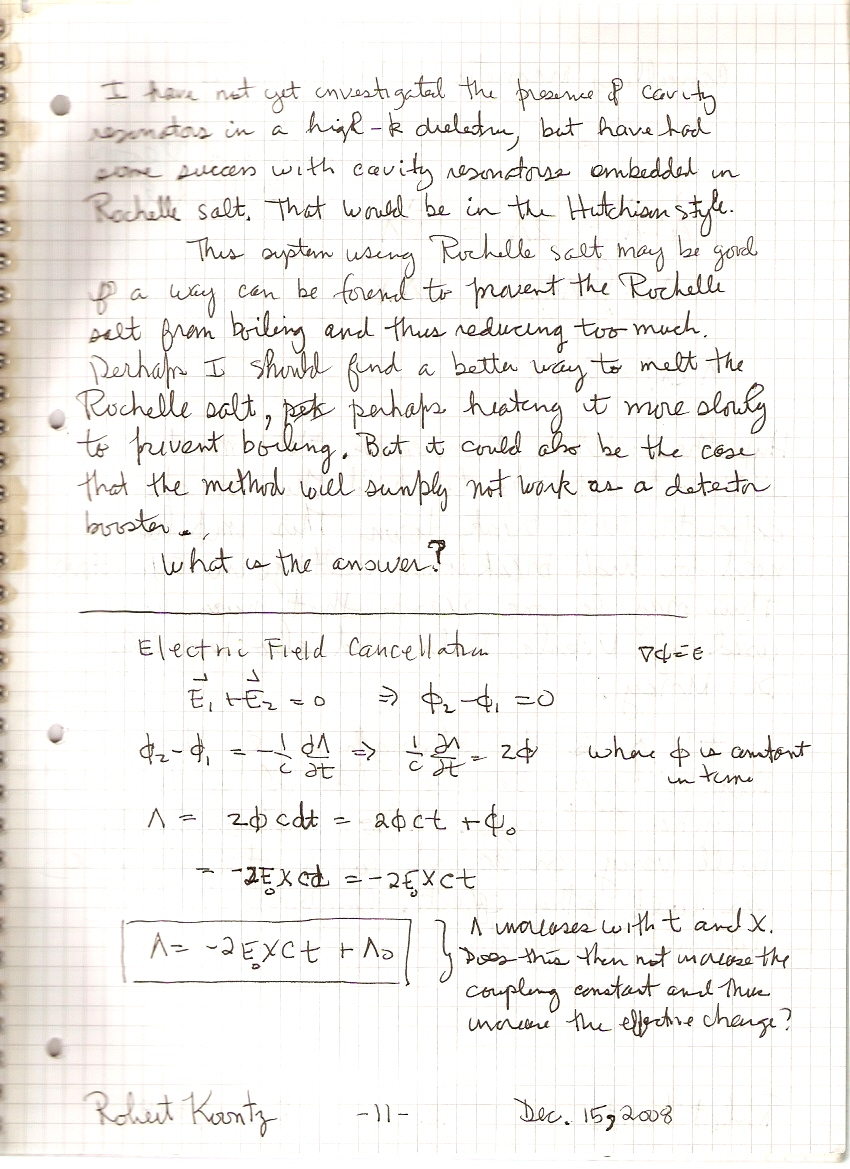 I have not yet investigated the presence of cavity
resonators in a high-k dielectric, but have had
some success with cavity resonators embedded in
Rochelle salt. That would be in the Hutchison style.
This system using Rochelle salt may be good
if a way can be found to prevent the Rochelle
salt from boiling and thus reducing too much.
Perhaps I should find a better way to melt the
Rochelle salt, perhaps heating it more slowly
to prevent boiling. But it could also be the case
that the method will simply not work as a detector
booster..
What is the answer?
Electric Field Cancellation ∇φ = E
E⃗₁ + E⃗₂ = 0 ⇒ φ₂ - φ₁ = 0
φ₂ - φ₁ = -1/c ∂Λ/∂t ⇒ 1/c ∂Λ/∂t = 2φ where φ is constant
in time
Λ = 2φcdt = 2φct + φ₀
= -2E₀Xcd = -2E₀Xct
Λ = -2E₀Xct + Λ₀
} Λ increases with t and X.
Does this then not increase the
coupling constant and thus
increase the effective charge?
Robert Koontz -11- Dec. 15, 2008